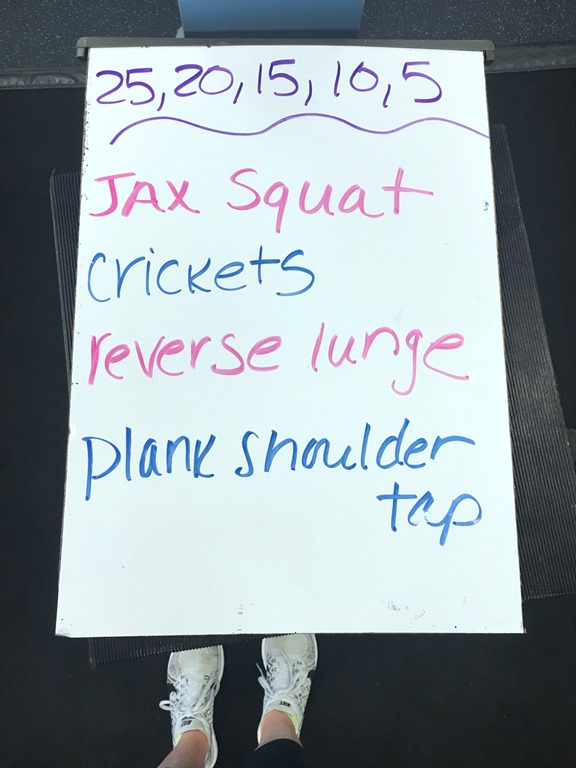 25, 20, 15, 10, 5
JAX Squat
crickets
reverse lunge
plank shoulder
tap